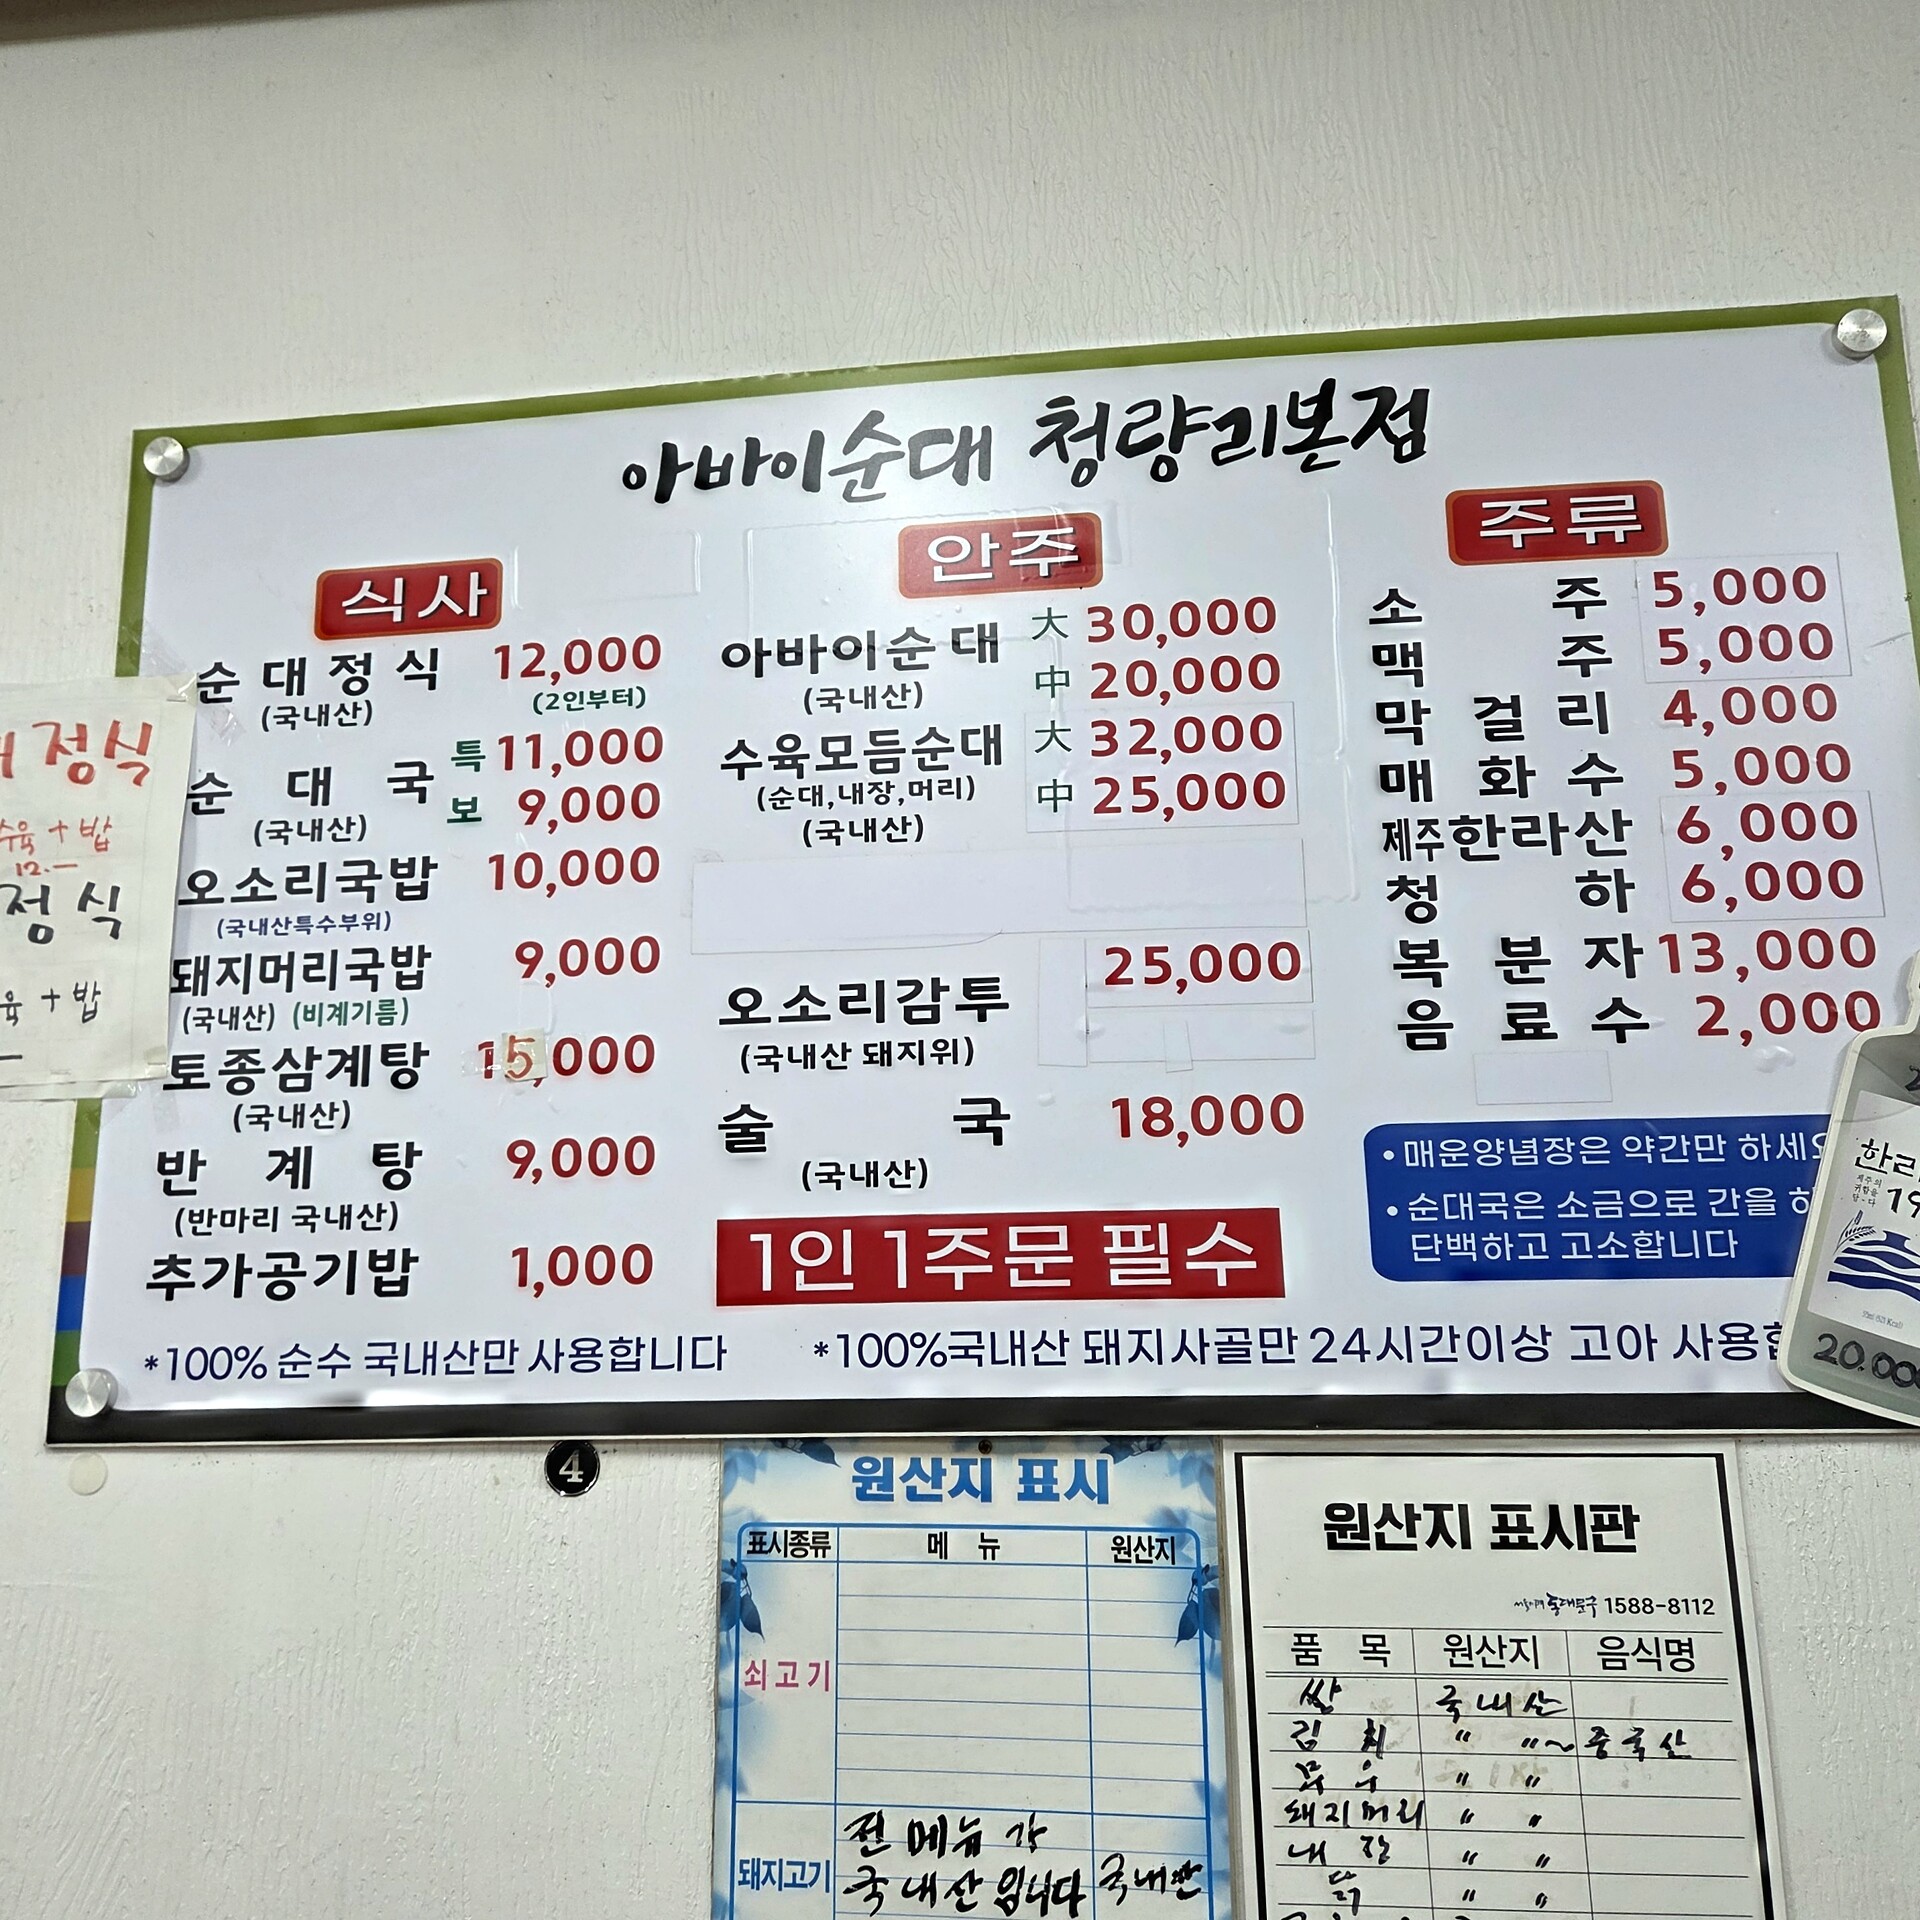 아바이순대 청량리본점
식사
순대정식 12,000
(국내산) (2인부터)
순대국 특 11,000
보 9,000
(국내산)
오소리국밥 10,000
(국내산특수부위)
돼지머리국밥 9,000
(국내산) (비계기름)
토종삼계탕 15,000
(국내산)
반계탕 9,000
(반마리 국내산)
추가공기밥 1,000
안주
아바이순대 大 30,000
(국내산) 中 20,000
수육모듬순대 大 32,000
(순대,내장,머리) 中 25,000
(국내산)
오소리감투 25,000
(국내산 돼지위)
술국 18,000
(국내산)
1인 1주문 필수
주류
소주 5,000
맥주 5,000
막걸리 4,000
매화수 5,000
제주한라산 6,000
청하 6,000
복분자 13,000
음료수 2,000
• 매운양념장은 약간만 하세요
• 순대국은 소금으로 간을 하
단백하고 고소합니다
*100% 순수 국내산만 사용합니다 *100%국내산 돼지사골만 24시간이상 고아 사용합
정식
수육 + 밥
12.-
정식
육 + 밥
한라
19
20.00
4
원산지 표시
표시종류 메뉴 원산지
쇠고기
돼지고기 전 메뉴 가
국내산 입니다 국내산
원산지 표시판
동대문구 1588-8112
품목 원산지 음식명
쌀 국내산
김치 〃 〃~중국산
무우 〃 〃
돼지머리 〃 〃
내장 〃 〃
닭 〃 〃